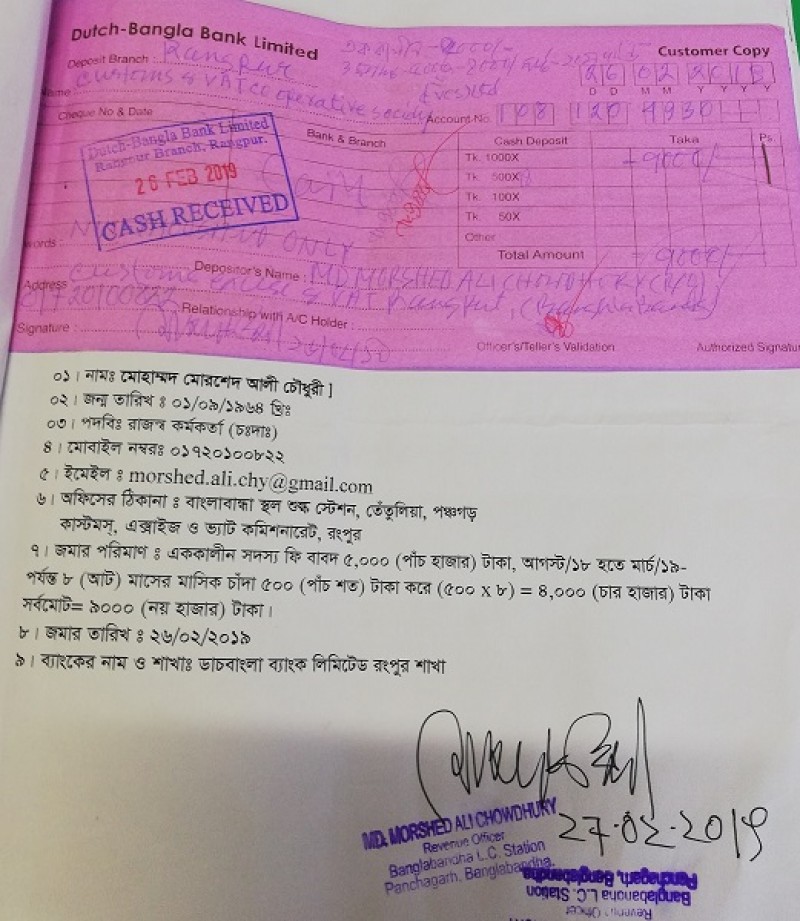 Dutch-Bangla Bank Limited
Customer Copy
Deposit Branch : Rangpur
Name Customs & VAT Co operative society
26 02 2019
D D M M Y Y Y Y
Cheque No & Date
Account No. 108 120 4930
Bank & Branch
Cash Deposit Taka Ps.
Dutch-Bangla Bank Limited
Rangpur Branch, Rangpur.
26 FEB 2019
CASH RECEIVED
Tk. 1000X 9000/-
Tk. 500X
Tk. 100X
Tk. 50X
Other
Total Amount 9000/-
words : ONLY
Depositor's Name : MD MORSHED ALI CHOWDHURY
Address Customs excise & VAT Rangpur, (Banglabandha)
01720100822
Relationship with A/C Holder :
Signature :
Officer's/Teller's Validation
Authorized Signatu
০১। নামঃ মোহাম্মদ মোরশেদ আলী চৌধুরী ]
০২। জন্ম তারিখ ঃ ০১/০৯/১৯৬৪ খ্রিঃ
০৩। পদবিঃ রাজস্ব কর্মকর্তা (চঃদাঃ)
৪। মোবাইল নম্বরঃ ০১৭২০১০০৮২২
৫। ইমেইল ঃ morshed.ali.chy@gmail.com
৬। অফিসের ঠিকানা ঃ বাংলাবান্ধা স্থল শুল্ক স্টেশন, তেঁতুলিয়া, পঞ্চগড়
কাস্টমস্, এক্সাইজ ও ভ্যাট কমিশনারেট, রংপুর
৭। জমার পরিমাণ ঃ এককালীন সদস্য ফি বাবদ ৫,০০০ (পাঁচ হাজার) টাকা, আগস্ট/১৮ হতে মার্চ/১৯-
পর্যন্ত ৮ (আট) মাসের মাসিক চাঁদা ৫০০ (পাঁচ শত) টাকা করে (৫০০ x ৮) = ৪,০০০ (চার হাজার) টাকা
সর্বমোট= ৯০০০ (নয় হাজার) টাকা।
৮। জমার তারিখ ঃ ২৬/০২/২০১৯
৯। ব্যাংকের নাম ও শাখাঃ ডাচবাংলা ব্যাংক লিমিটেড রংপুর শাখা
27-02-2019
MD. MORSHED ALI CHOWDHURY
Revenue Officer
Banglabandha L.C. Station
Panchagarh, Banglabandha.
Panchagarh, Banglabandha
Banglabandha L.C. Station
Revenue Officer